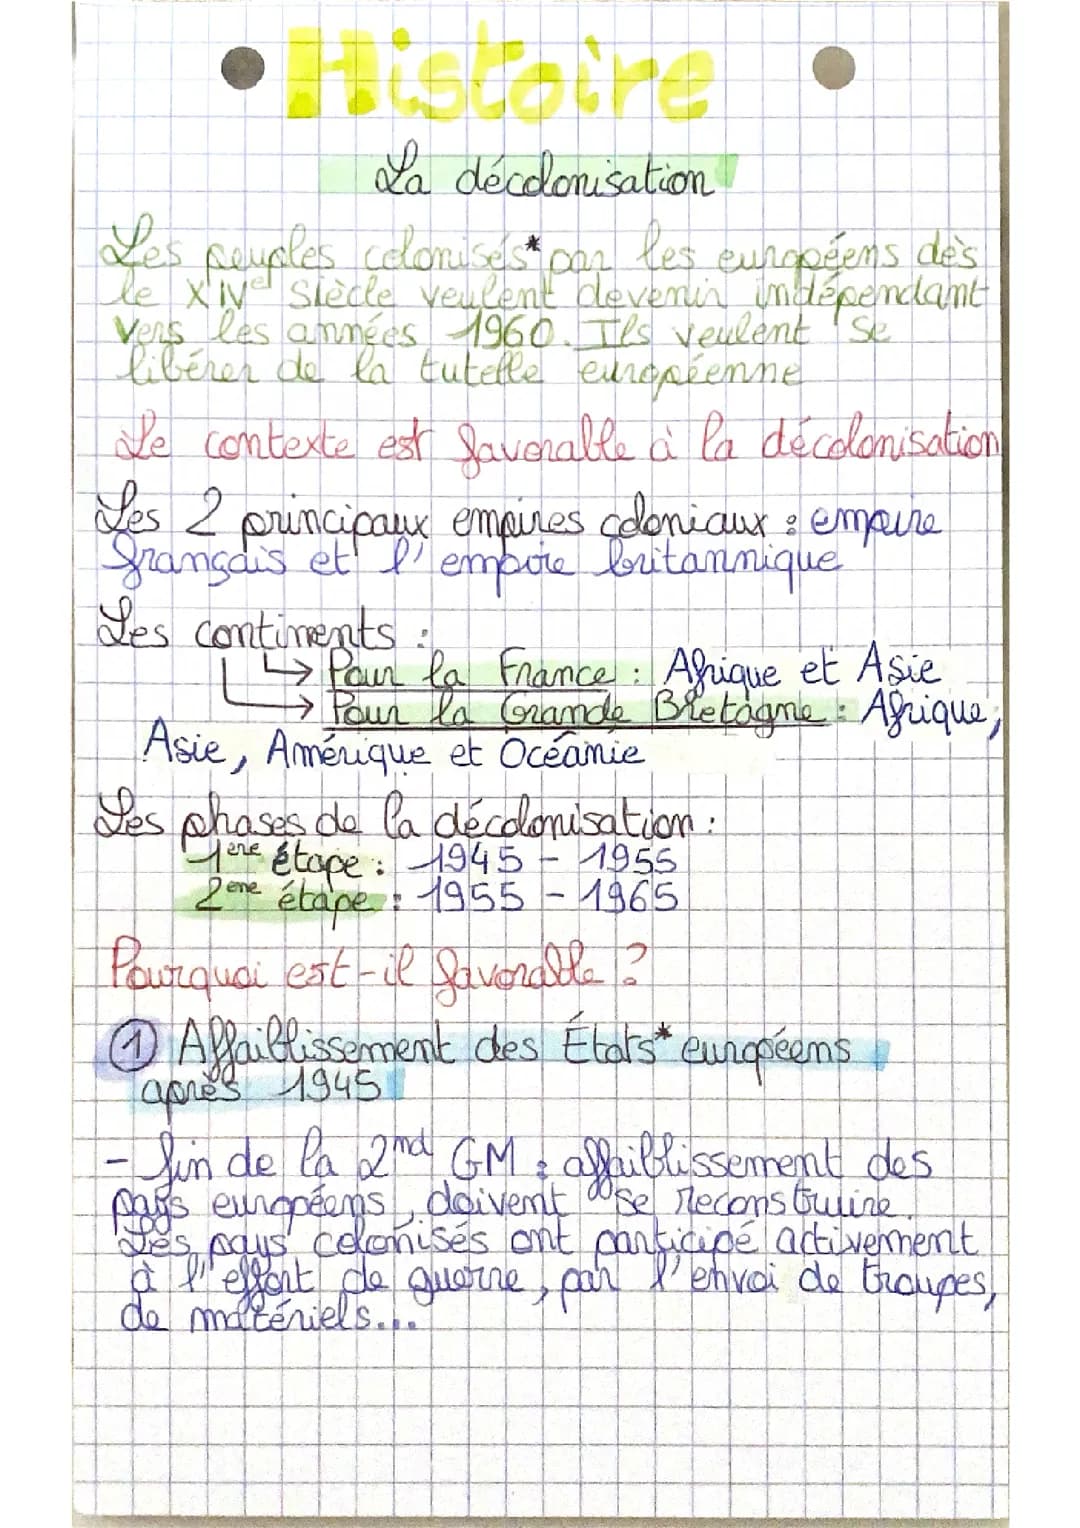 Histoire
La décolonisation
Les peuples colonisés* par les européens dès
le XIVe siècle veulent devenir indépendant
vers les années 1960. Ils veulent se
libérer de la tutelle européenne
Le contexte est favorable à la décolonisation
Les 2 principaux empires coloniaux : empire
français et l'empire britannique
Les continents :
↳ Pour la France : Afrique et Asie
↳ Pour la Grande Bretagne : Afrique,
Asie, Amérique et Océanie
Les phases de la décolonisation :
1ère étape : 1945 - 1955
2ème étape : 1955 - 1965
Pourquoi est-il favorable ?
① Affaiblissement des États* européens
après 1945
- fin de la 2nd GM : affaiblissement des
pays européens, doivent se reconstruire.
Les pays colonisés ont participé activement
à l'effort de guerre, par l'envoi de troupes,
de matériels...